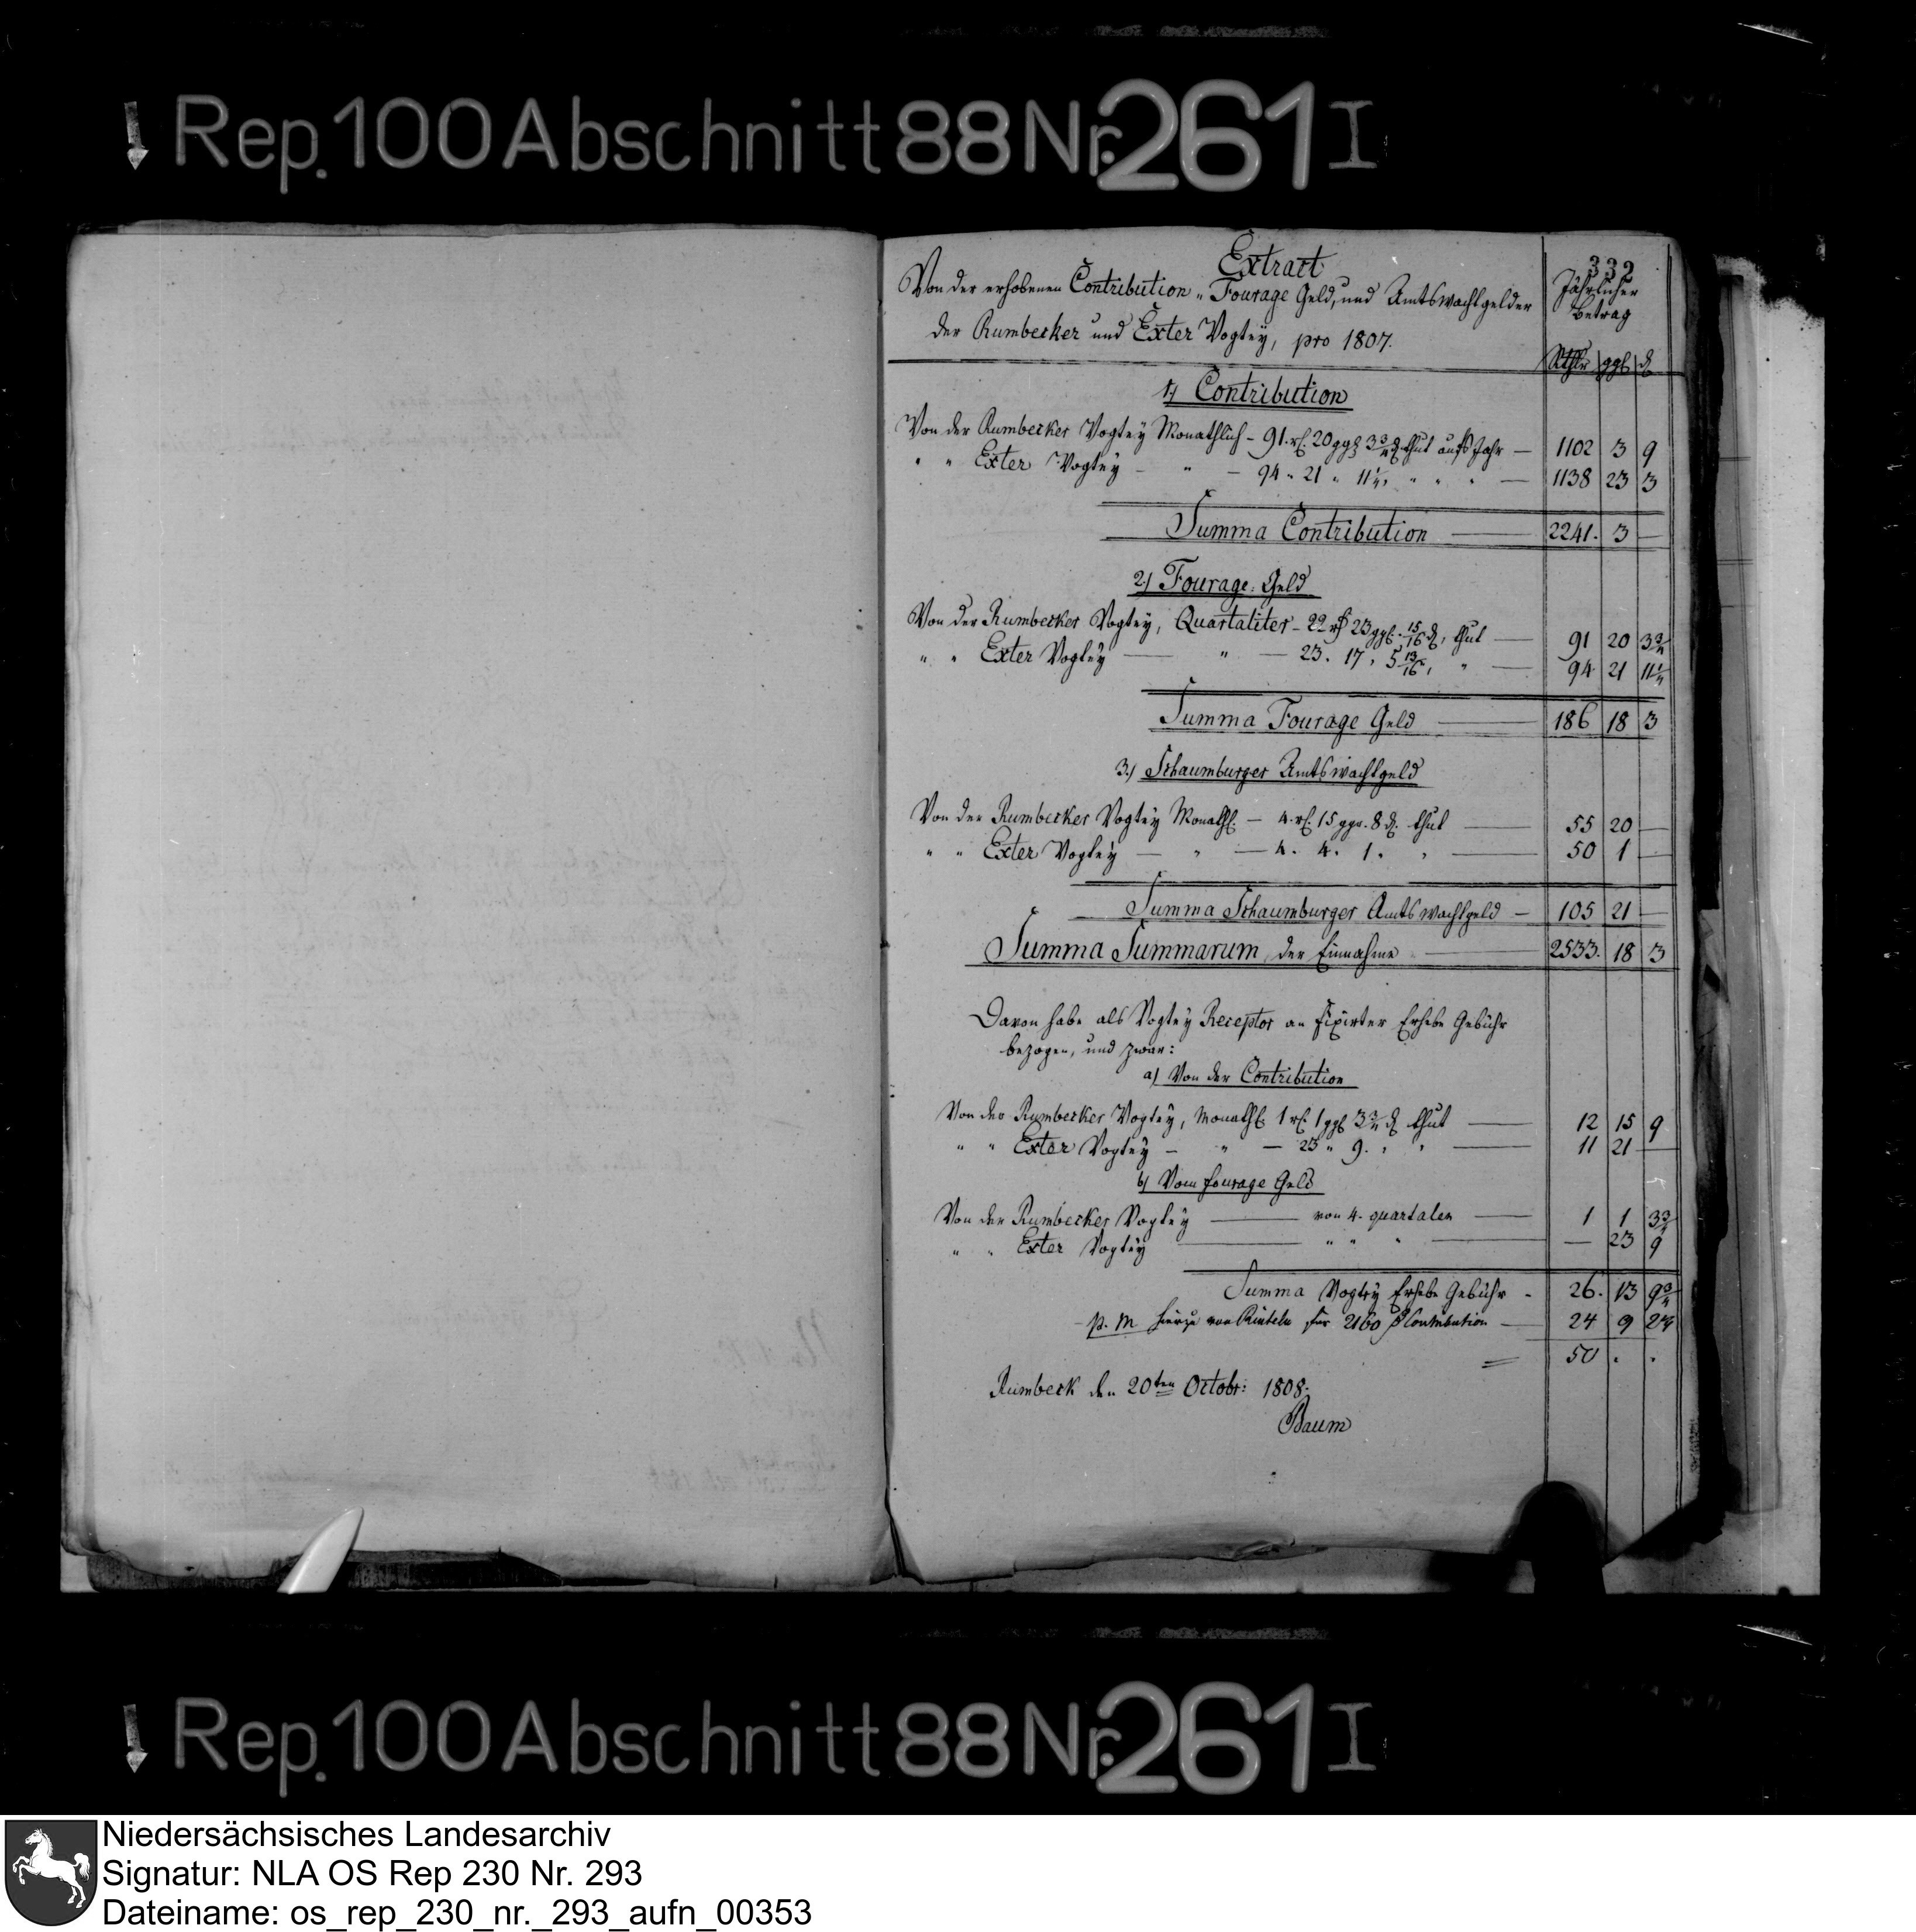 Rep. 100 Abschnitt 88 Nr. 261 I
332
Extract
Von der erhobenen Contribution, Fourage Geld, und Amtswachtgelder
der Rumbecker und Exter Vogtey, pro 1807.
Jährlicher
Betrag
Rthlr ggl ₰
1) Contribution
Von der Rumbecker Vogtey Monathlich – 91. rl. 20 ggl 3 3/4 ₰ thut aufs Jahr — 1102 3 9
" " Exter Vogtey – " – 94 " 21 " 11 1/4 " " " " — 1138 23 3
Summa Contribution — 2241. 3 —
2.) Fourage: Geld
Von der Rumbecker Vogtey, Quartaliter – 22 rl 23 ggl. 15/16 ₰, thut — 91 20 3 3/4
" " Exter Vogtey — " — 23. 17. 5 13/16, " — 94 21 11 1/4
Summa Fourage Geld — 186 18 3
3.) Schaumburger Amtswachtgeld
Von der Rumbecker Vogtey Monathl. – 4. rl. 15 ggr. 8 ₰. thut — 55 20 —
" " Exter Vogtey — " — 4. 4. 1. " — 50 1 —
Summa Schaumburger Amtswachtgeld – 105 21 —
Summa Summarum der Einnahme — 2533. 18 3
Davon habe als Vogtey Receptor an fixirter Erhebe Gebühr
bezogen, und zwar:
a) Von der Contribution
Von der Rumbecker Vogtey, Monathl. 1 rl. 1 ggl 3 3/4 ₰ thut — 12 15 9
" " Exter Vogtey – " – 23 " 9. " " — 11 21 —
b) Vom fourage Geld
Von der Rumbecker Vogtey — von 4. quartalen — 1 1 3 3/4
" " Exter Vogtey — " " " — — 23 9
Summa Vogtey Erhebe Gebühr – 26. 13 9 3/4
p. m hierzu von Rinteln für 2160 Contribution — 24 9 2 1/4
= 50 . .
Rumbeck den 20ten Octobr: 1808.
Baum
Rep. 100 Abschnitt 88 Nr. 261 I
Niedersächsisches Landesarchiv
Signatur: NLA OS Rep 230 Nr. 293
Dateiname: os_rep_230_nr._293_aufn_00353